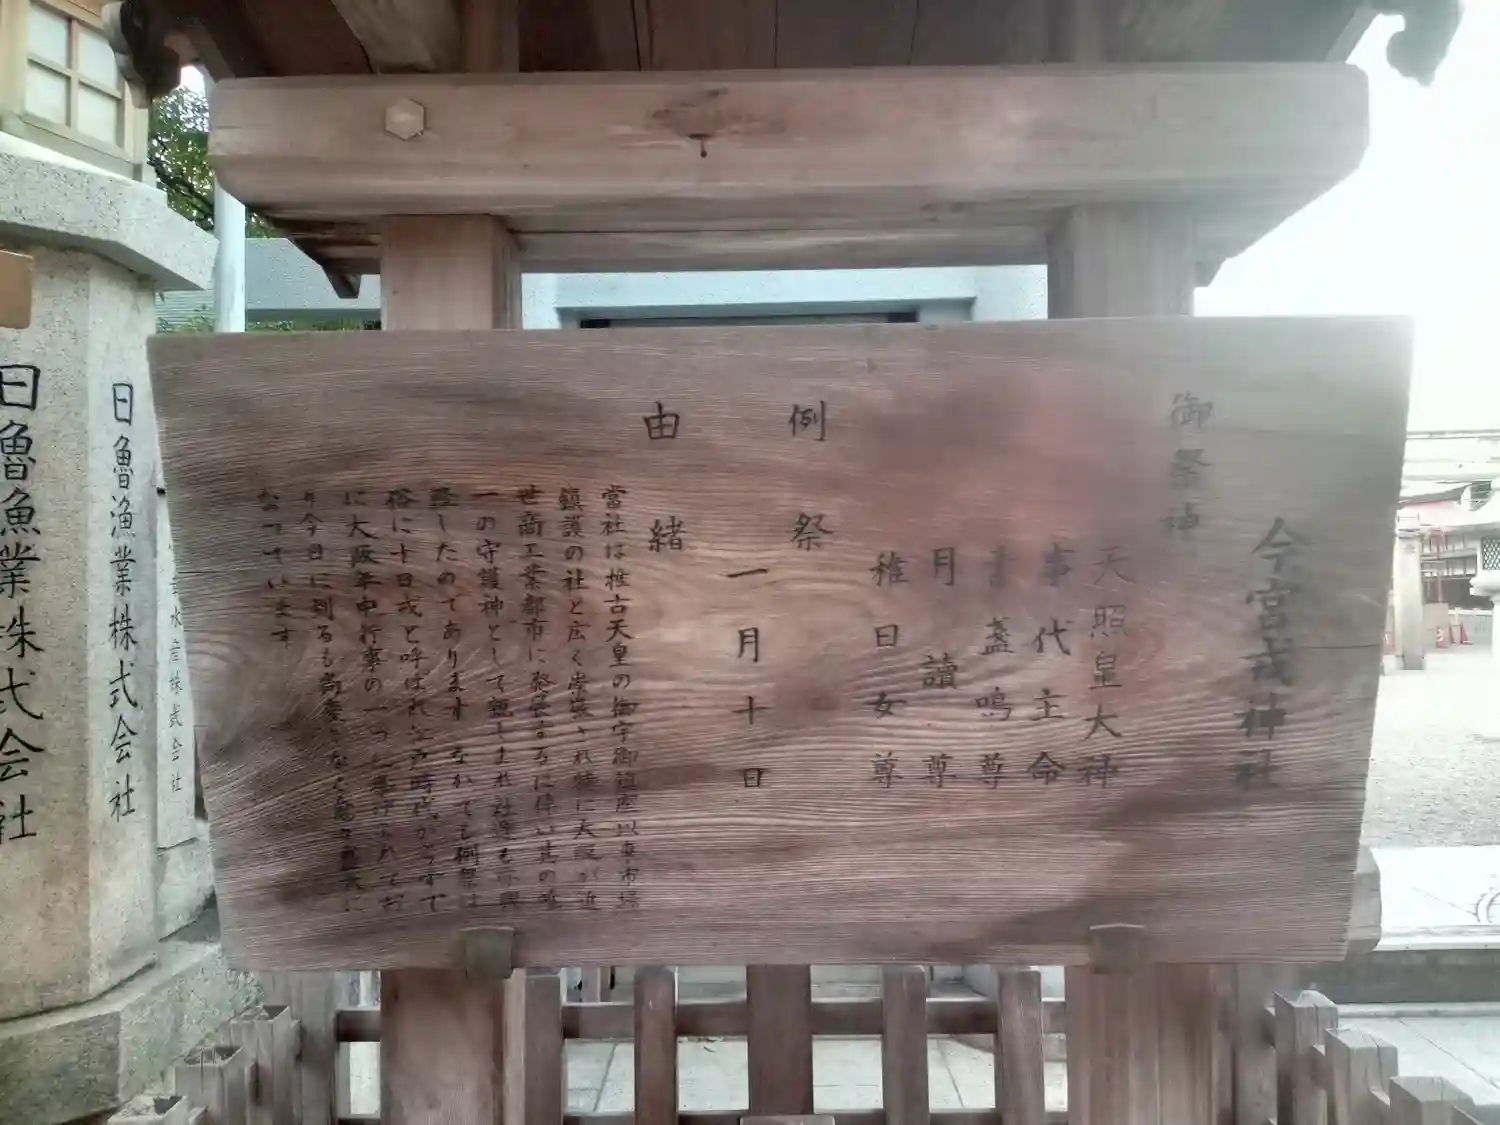 今宮戎神社
御祭神
天照皇大神
事代主命
素盞嗚尊
月讀尊
稚日女尊
例祭
一月十日
由緒
當社は推古天皇の御宇御鎮座以来市場
鎮護の社と広く崇敬され特に大阪が近
世商工業都市に発展するに伴い其の唯
一の守護神として親しまれ社運も亦興
隆したのであります なかでも例祭は
俗に十日戎と呼ばれ江戸時代からすで
に大阪年中行事の一つに
り今日に到るも尚
なっています
日魯漁業株式会社
日魯漁業株式会社
水産株式会社